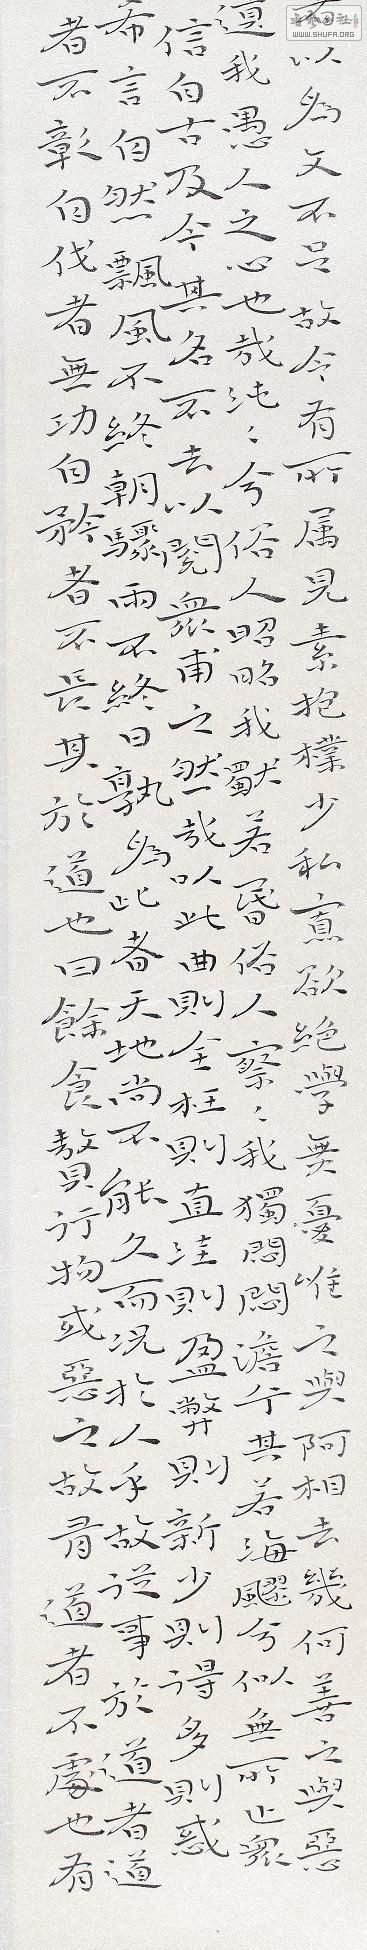 以為文不足故令有所属見素抱樸少私寡欲絕學無憂唯之與阿相去幾何善之與惡
遺我愚人之心也哉沌々兮俗人昭昭我獨若昏俗人察々我獨悶悶澹兮其若海飂兮似無所止眾
信自古及今其名不去以閱眾甫之然哉以此曲則全枉則直洼則盈弊則新少則得多則惑
希言自然飄風不終朝驟雨不終日孰為此者天地尚不能久而況於人乎故從事於道者道
者不彰自伐者無功自矜者不長其於道也曰餘食贅行物或惡之故有道者不處也有
WWW.SHUFA.ORG